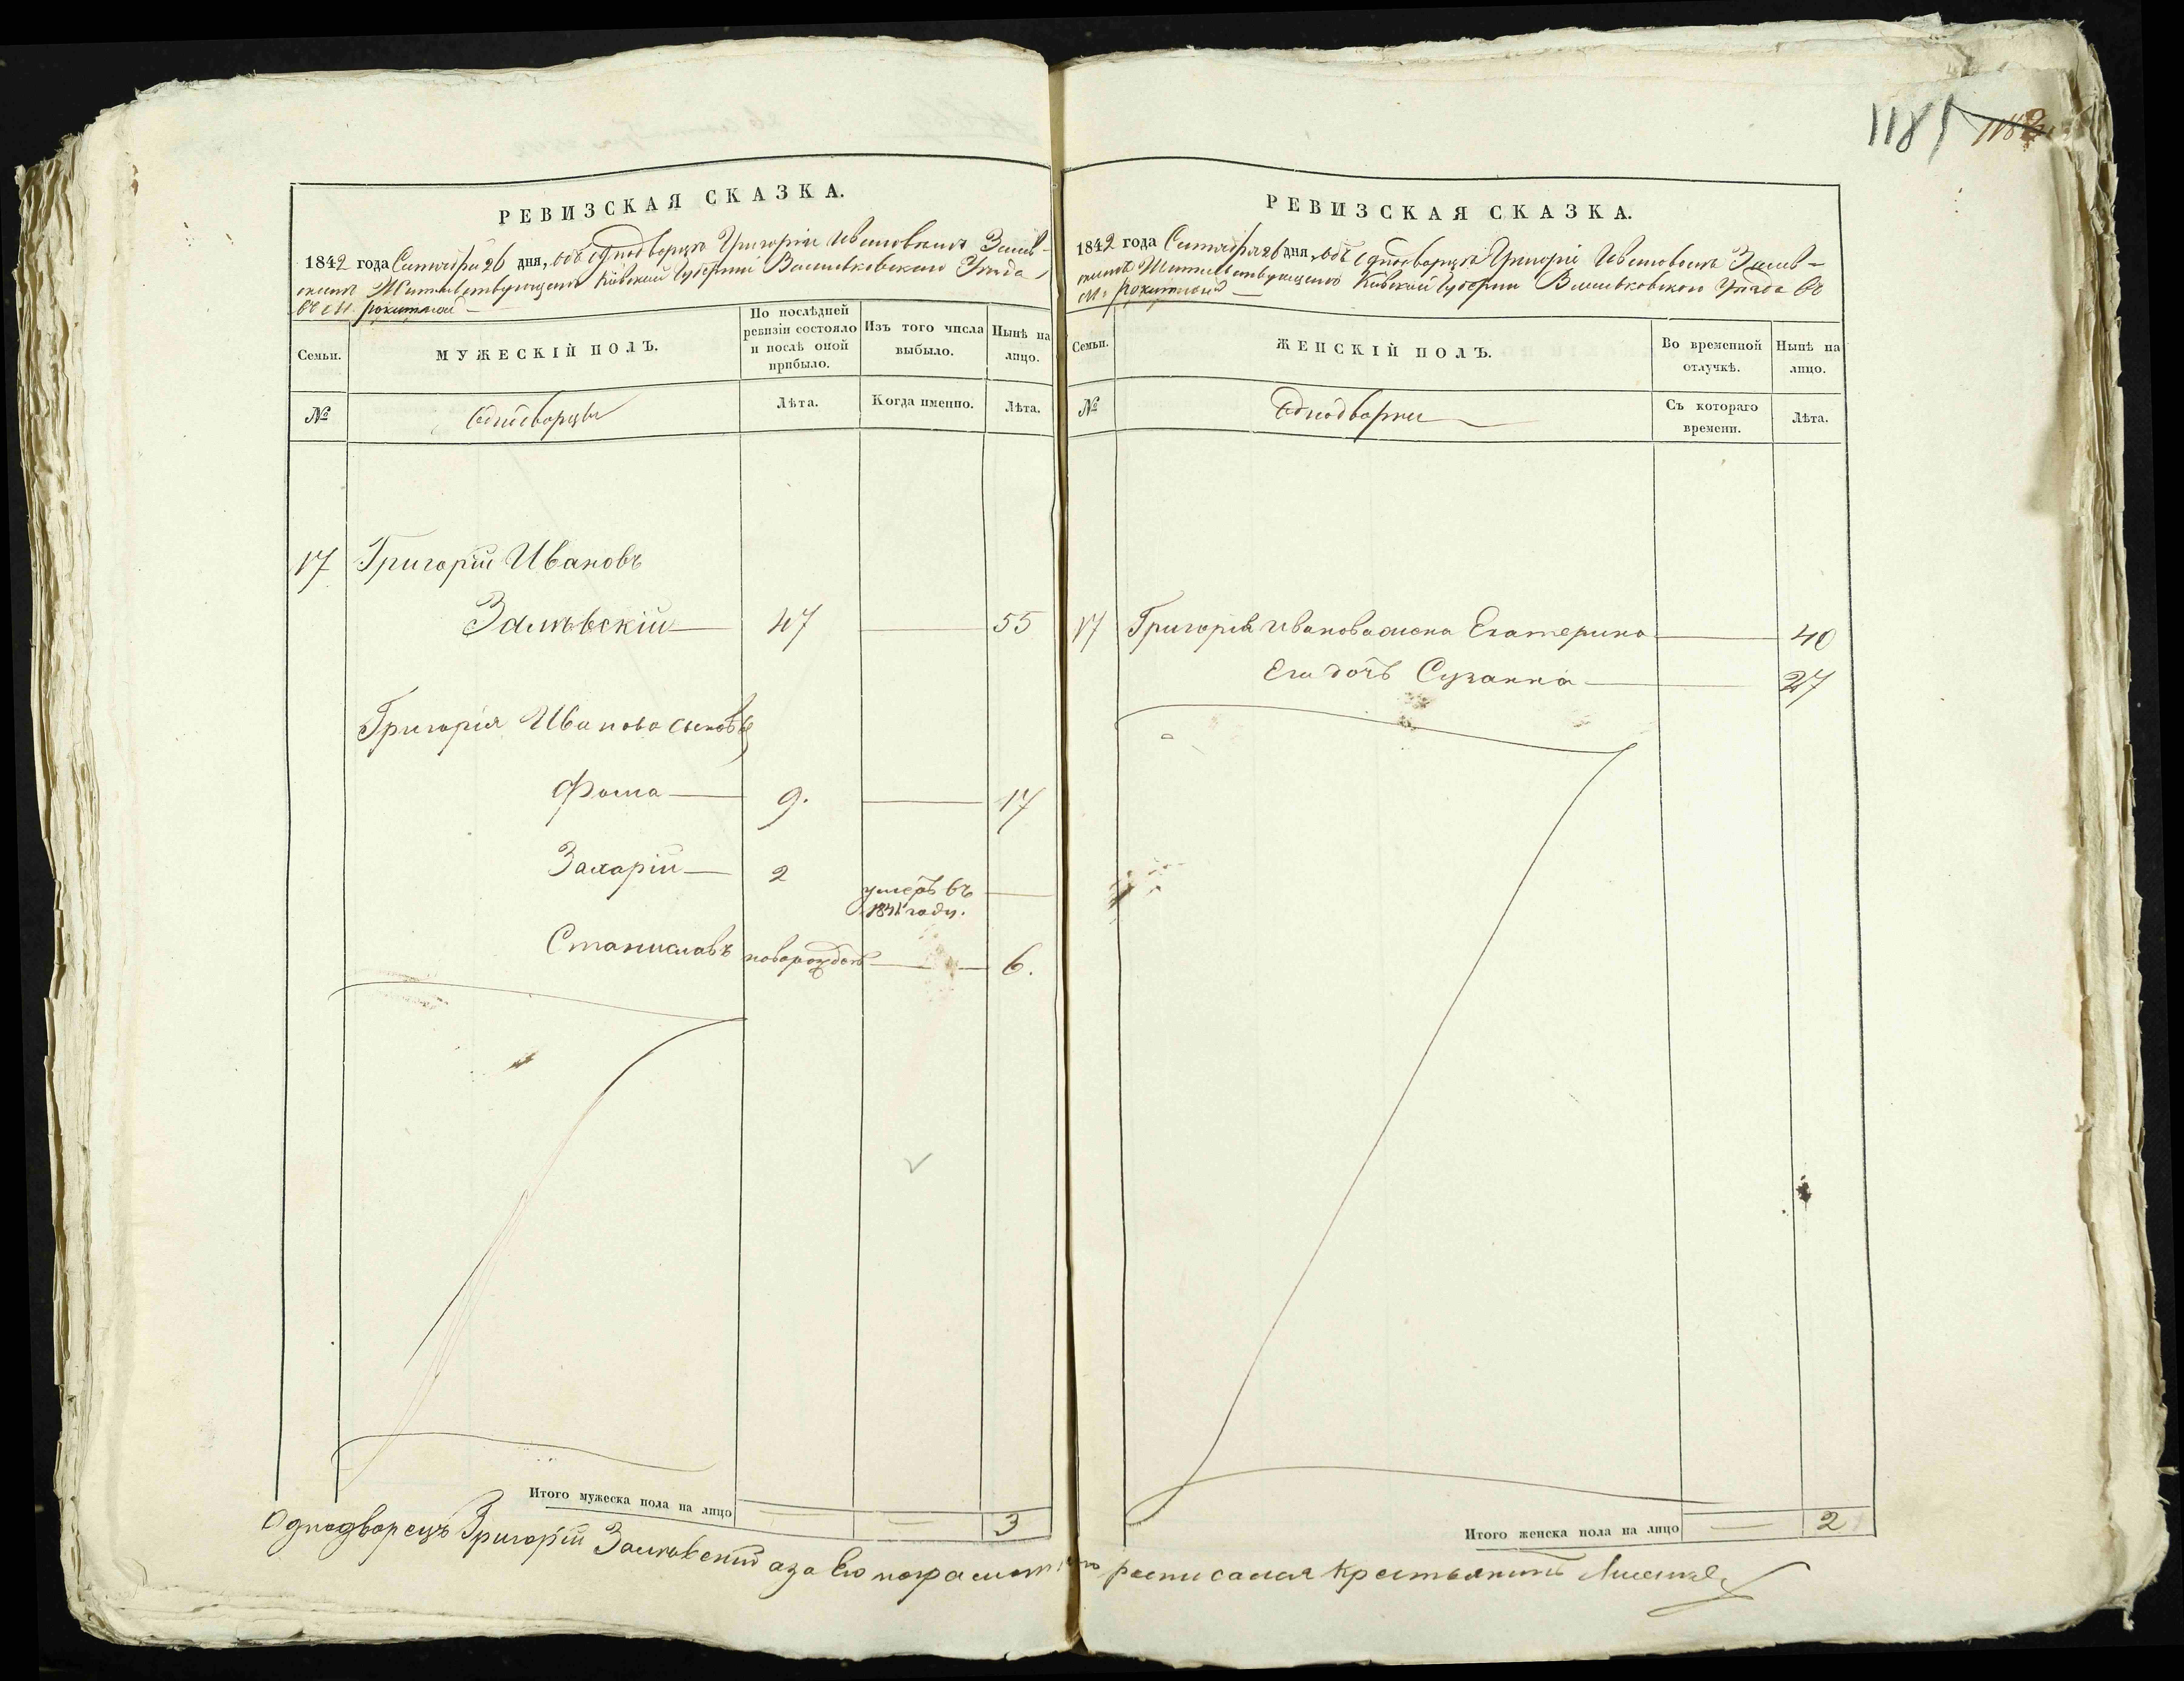 1185 1182
РЕВИЗСКАЯ СКАЗКА.
1842 года Сентября 26 дня, объ Однодворцѣ Григоріи Ивановѣ
Жительствующемъ Кіевской Губерніи Васильковскаго Уѣзда
въ м. Рокитной
Семьи.
МУЖЕСКІЙ ПОЛЪ.
По послѣдней ревизіи состояло и послѣ оной прибыло.
Изъ того числа выбыло.
Нынѣ на лицо.
№
Однодворцы
Лѣта.
Когда именно.
Лѣта.
17 Григорій Ивановъ
Залѣвскій 47 — 55
Григорія Иванова сыновья
Фома — 9. — 17
Захарій — 2 умеръ въ —
году.
Станиславъ новорожден — 6.
Итого мужеска пола на лицо — — 3
РЕВИЗСКАЯ СКАЗКА.
1842 года Сентября 26 дня, объ Однодворцѣ Григоріѣ Ивановѣ
Жительствующемъ Кіевской Губерніи Васильковскаго Уѣзда въ
м. Рокитной
Семьи.
ЖЕНСКІЙ ПОЛЪ.
Во временной отлучкѣ.
Нынѣ на лицо.
№
Однодворки
Съ котораго времени.
Лѣта.
17 Григорія Иванова жена Екатерина — 40
Его дочь Сузанна — 27
Итого женска пола на лицо — 2
Однодворецъ Григорій а за его неграмотн росписался крестьянинъ